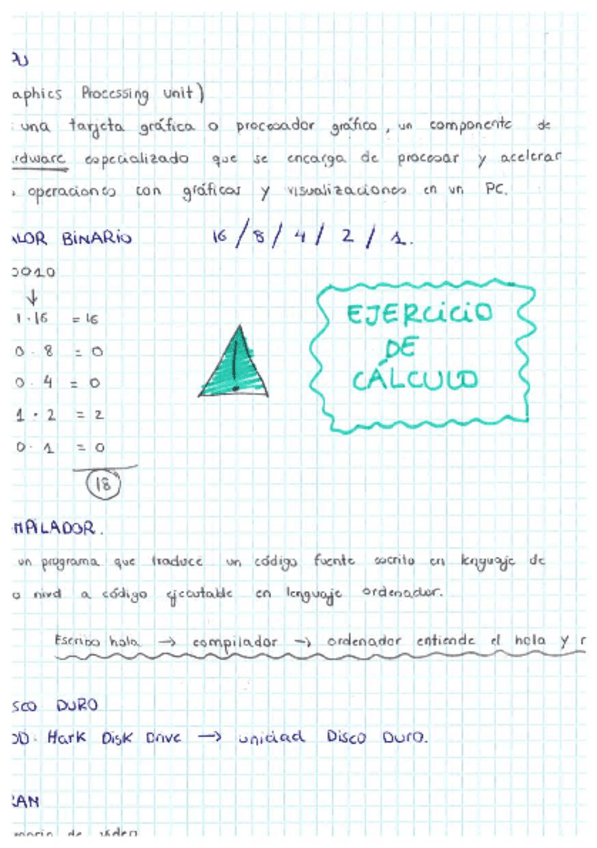 PU
aphics Processing unit)
una tarjeta gráfica o procesador gráfico, un componente de
rdware especializado que se encarga de procesar y acelerar
operaciones con gráficos y visualizaciones en un PC.
ALOR BINARIO 16/8/4/2/1.
0010
↓
1·16 = 16
0·8 = 0
0·4 = 0
1·2 = 2
0·1 = 0
18
!
EJERCICIO
DE
CÁLCULO
MPILADOR.
un programa que traduce un código fuente escrito en lenguaje de
o nivel a código ejecutable en lenguaje ordenador.
Escribo hola → compilador → ordenador entiende el hola y r
SCO DURO
DD: Hark Disk Drive → unidad Disco Duro.
RAM
moria de video